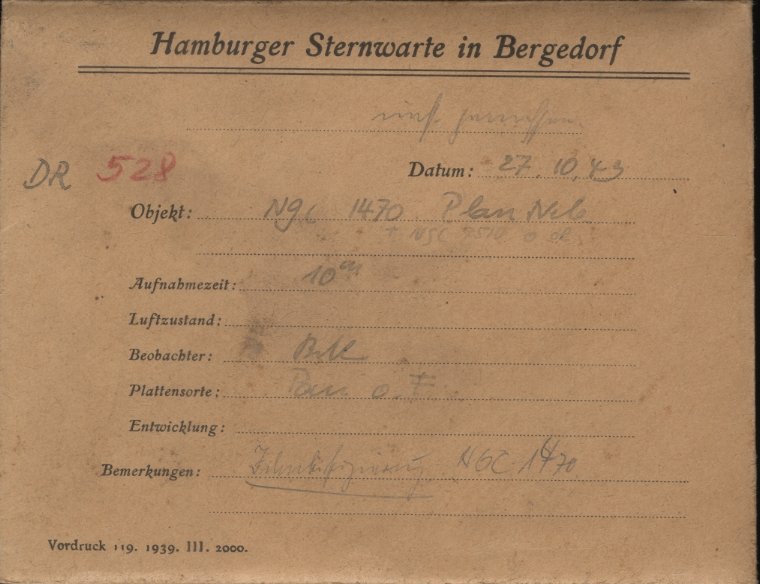 Hamburger Sternwarte in Bergedorf
DR 528
Datum: 27.10.43
Objekt: NGC 1470 Plan Neb
Aufnahmezeit: 10m
Luftzustand:
Beobachter:
Plattensorte: Pan o. F.
Entwicklung:
Bemerkungen: Identifizierung NGC 1470
Vordruck 119. 1939. III. 2000.